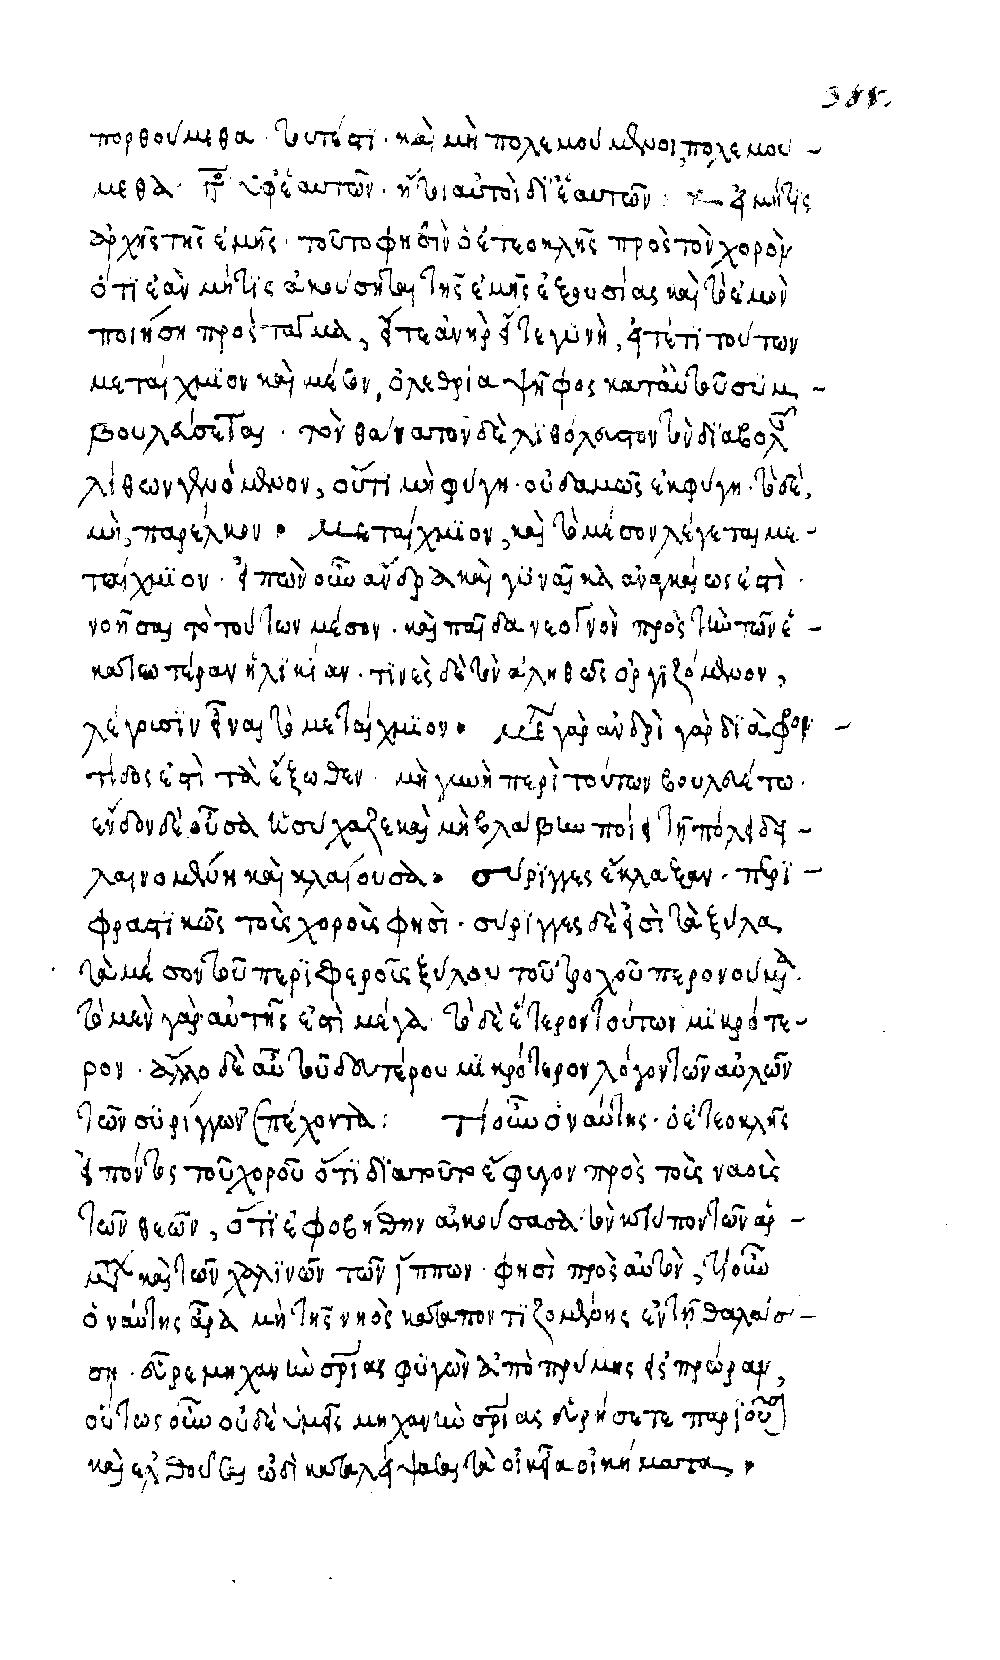 πορθούμεθα · τουτέστι · καὶ μὴ πολεμούμενοι, πολεμού-
μεθα · ὑφ' ἑαυτῶν · ἤτοι αὐτοὶ δι' ἑαυτῶν : εἰ μή τις
ἀρχῆς τῆς ἐμῆς · τοῦτο φησὶν ὁ ἐτεοκλῆς πρὸς τὸν χορὸν
ὅτι ἐὰν μή τις ἀκούσηται τῆς ἐμῆς ἐξουσίας καὶ τὸ ἐμὸν
ποιήση πρόσταγμα, εἴτε ἀνὴρ εἴτε γυνὴ, εἴτέ τι τούτων
μεταίχμιον καὶ μέσον, ὀλεθρία ψῆφος κατ' αὐτοῦ συμ-
βουλεύσεται · τὸν θάνατον δὲ λιθόλευστον τὸν διαβολῆς
λίθων γενόμενον, οὔτι μὴ φύγη · οὐδαμῶς ἐκφύγη · τὸ δὲ,
μὴ, παρέλκον · Μεταίχμιον, καὶ τὸ μέσον λέγεται με-
ταίχμιον · εἰπὼν οὖν ἄνδρα καὶ γυναῖκα ἀναγκαίως ἐστὶ
νοῆσαι τὸ τούτων μέσον · καὶ παῖδα νεογνὸν πρὸς τὴν τῶν ἑ-
κατέραν ἡλικίαν · τινὲς δὲ τὸν ἀληθῶς ὀργιζόμενον,
λέγουσιν εἶναι τὸ μεταίχμιον · μέλει γὰρ ἀνδρὶ γὰρ διὰ φρον-
τίδος ἐστὶ τὰ ἔξωθεν · μὴ γυνὴ περὶ τούτων βουλευέτω ·
ἔνδον δὲ οὖσα ἡσύχαζε καὶ μὴ βλάβην ποίει τῆ πόλει δει-
λαινομένη καὶ κλαίουσα · σύριγγες ἔκλαγξαν · περι-
φραστικῶς τοῖς χοροῖς φησὶ · σύριγγες δέ εἰσὶ τὰ ξύλα
τὰ μέσον τοῦ περιφεροῦς ξύλου τοῦ τροχοῦ περονούμενα ·
τὸ μὲν γὰρ αὐτῆς ἐστὶ μέγα · τὸ δὲ ἕτερον τούτων μικρότε-
ρον · ἄλλο δὲ αὖ τοῦ δευτέρου μικρότερον λόγον τῶν αὐλῶν
τῶν συρίγγων ἐπέχοντα : Τί οὖν ὁ ναύτης · ὁ ἐτεοκλῆς
εἰπόντος τοῦ χοροῦ ὅτι διατοῦτο ἔφυγον πρὸς τοὺς ναοὺς
τῶν θεῶν, ὅτι ἐφοβήθην ἀκούσασα τὸν κτύπον τῶν ἁρ-
μάτων καὶ τῶν χαλινῶν τῶν ἵππων · φησὶ πρὸς αὐτὸν, τί οὖν
ὁ ναύτης ἆρα μὴ τῆς νηὸς καταποντιζομένης ἐν τῆ θαλάσ-
ση · εὗρε μηχανὴν σωτηρίας φυγὼν ἀπὸ πρύμνης εἰς πρώραν,
οὕτως οὖν οὐδὲ ὑμεῖς μηχανὴν σωτηρίας εὑρήσετε παριοῦσαι
καὶ ἐλθοῦσαι ὧδε καταλείψασαι τὰ οἰκεῖα οἰκήματα, ·